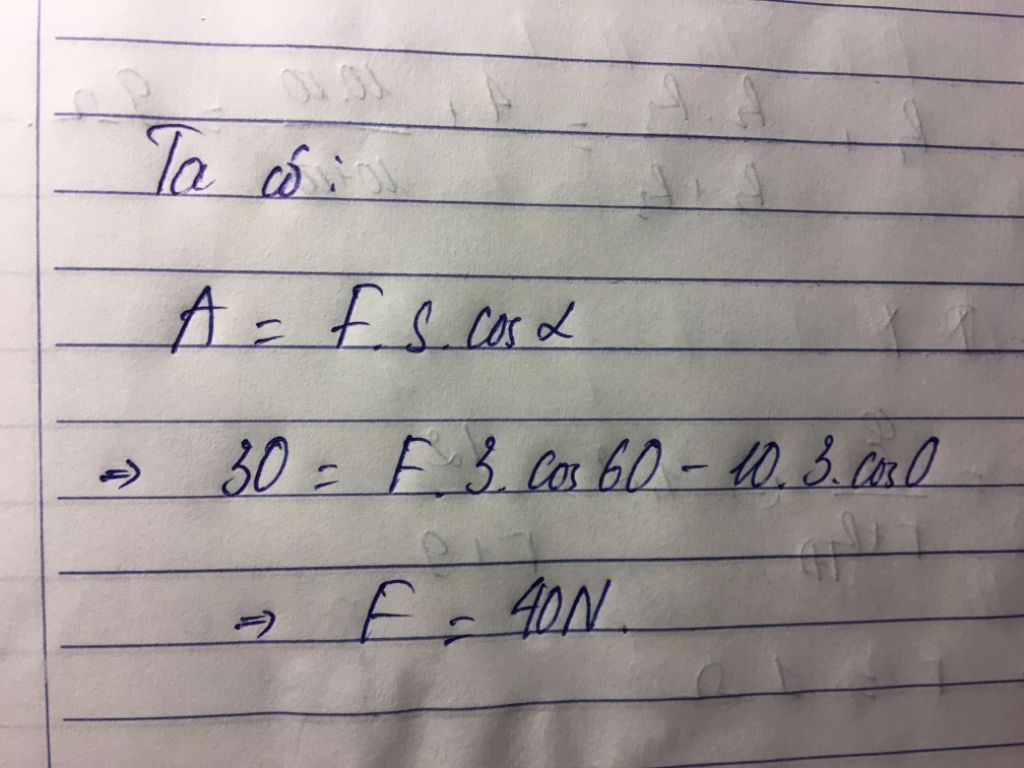 Ta có:
A = F.S.cosα
⇒ 30 = F.3.cos60 - 10.3.cos0
⇒ F = 40N.